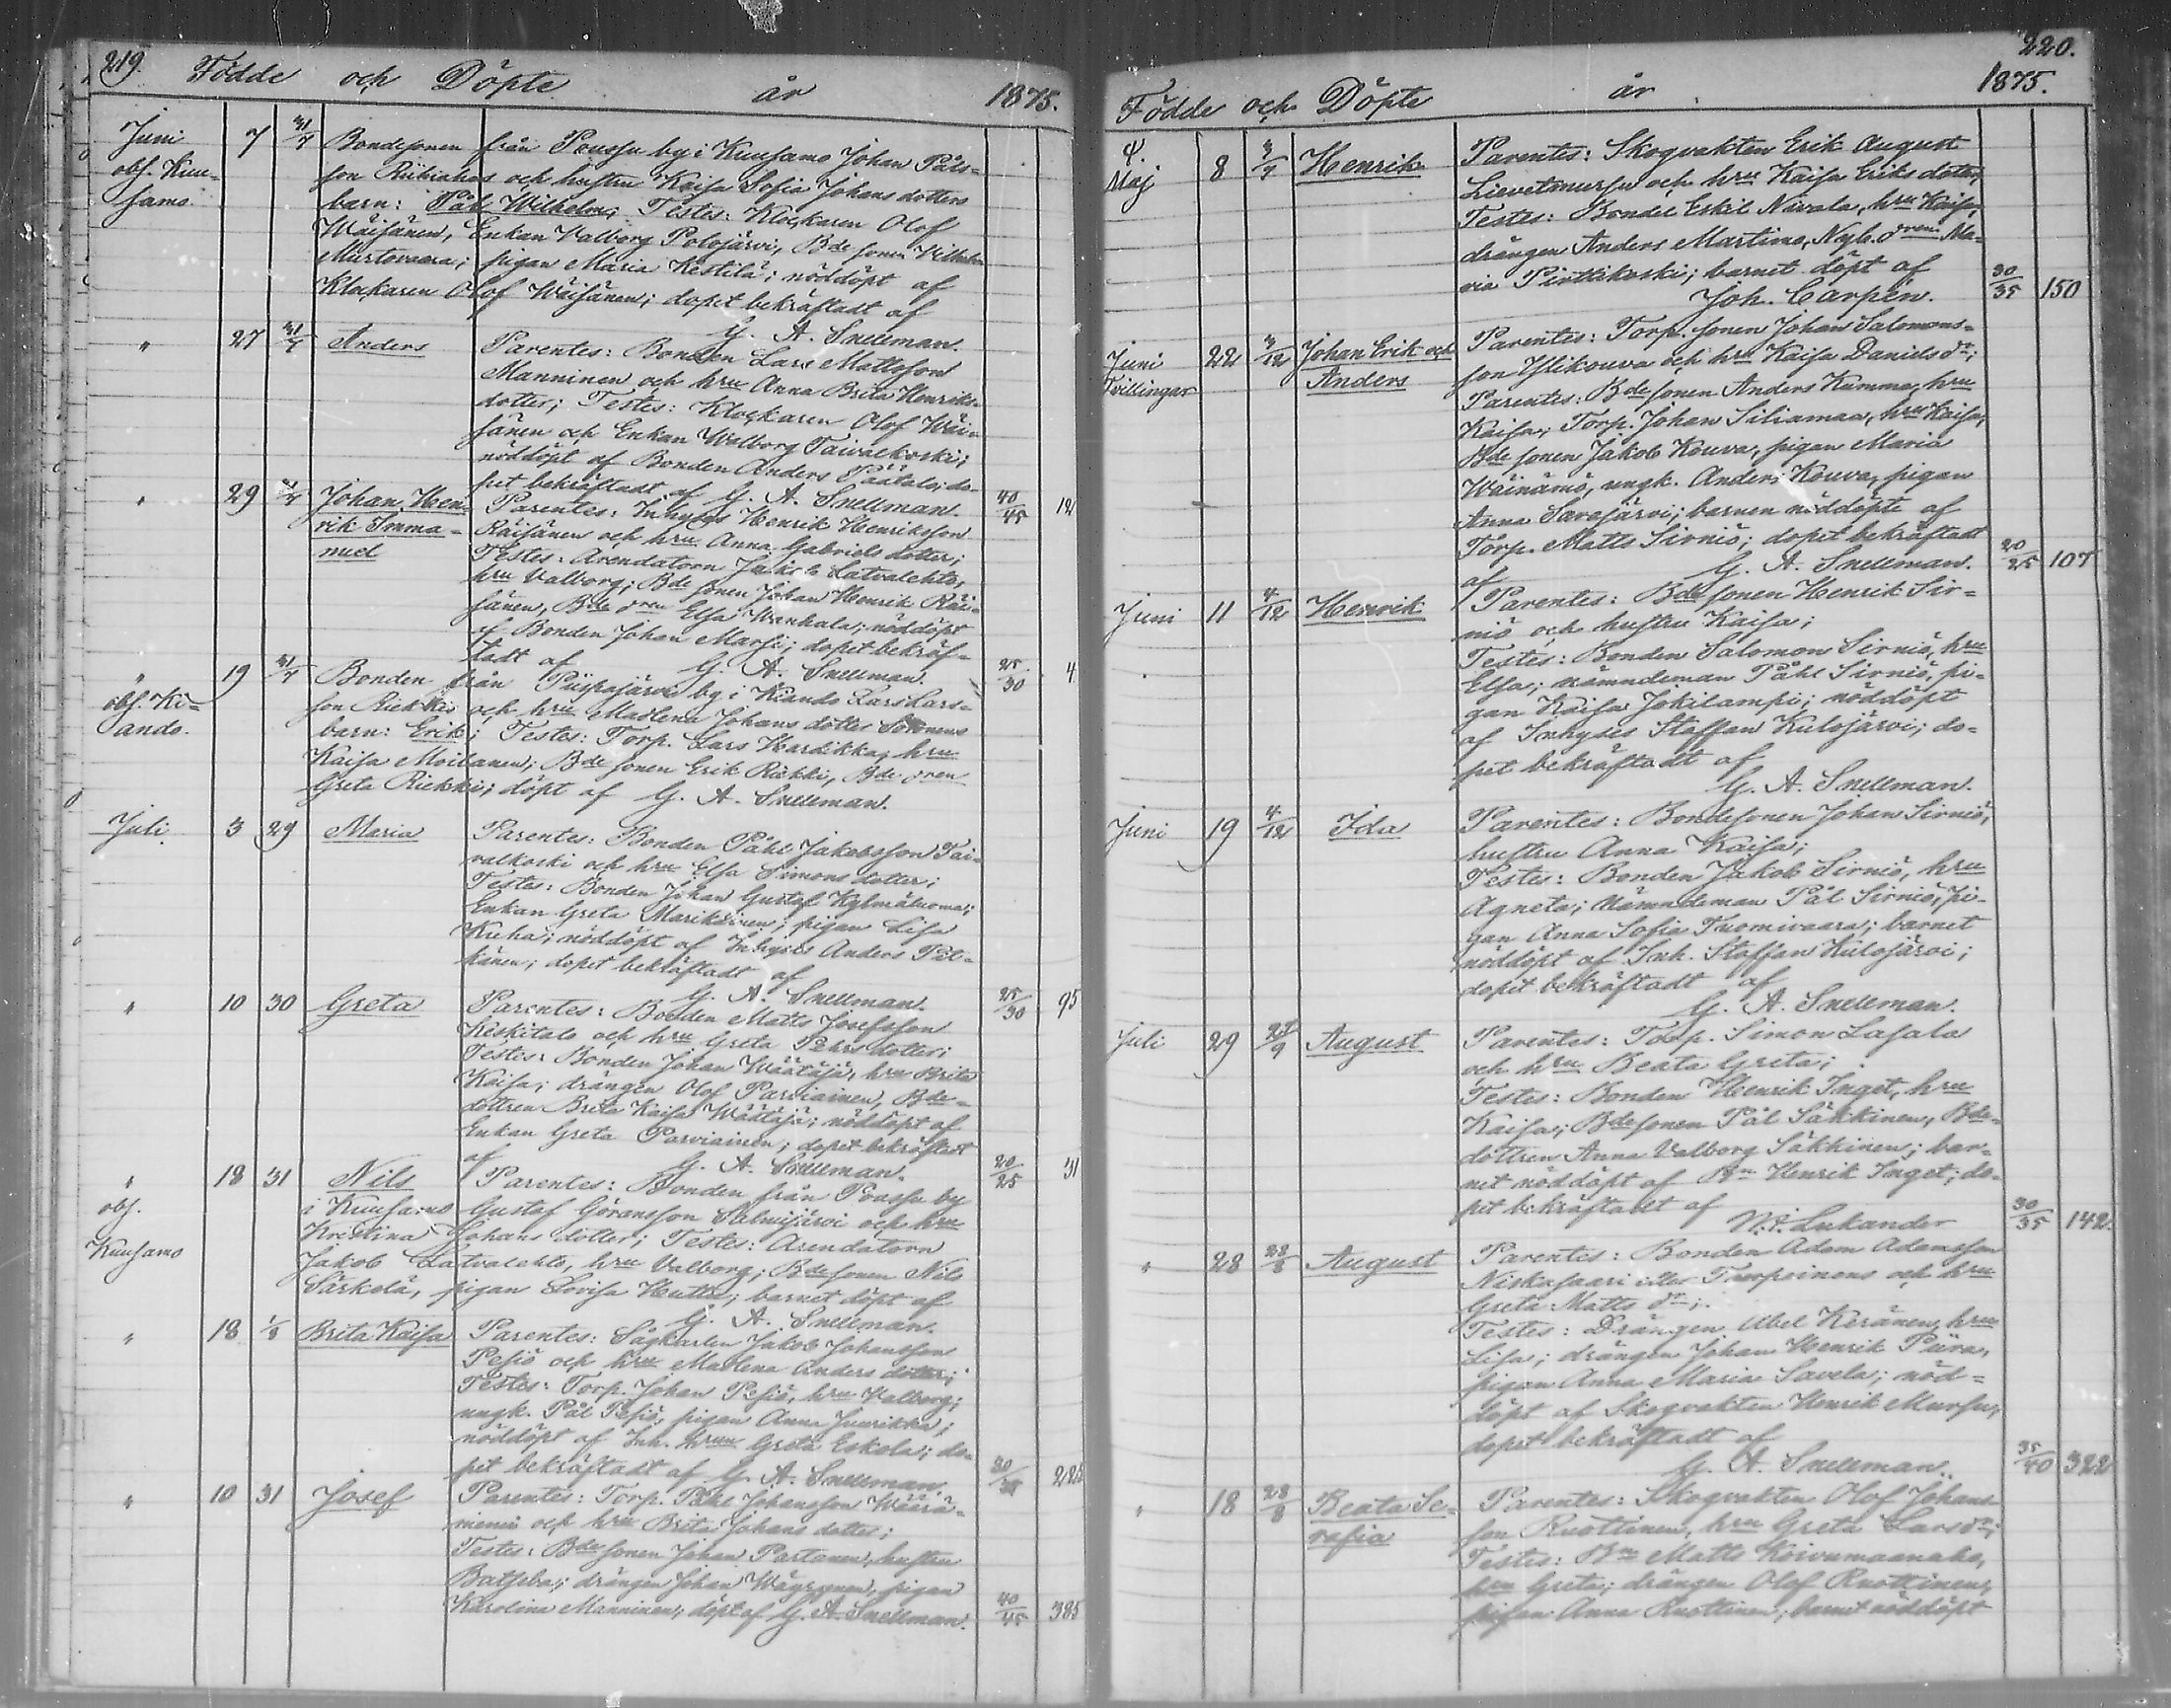 219. Födde och Döpte år 1875.
Juni 7 31/7 Bondesonen från Poussu by i Kuusamo Johan Påls-
obs. Kuu- son Riihiahos och hustru Kaisa Sofia Johans dotters
samo. barn: Påhl Wilhelm; Testes: Klockaren Olof
Wäisänen, Enkan Valborg Polojärvi, Bde sonen Vilhelm
Murtovaara; pigan Maria Kestilä; nöddöpt af
Klockaren Olof Wäisänen; dopet bekräftadt af
G. A. Snellman.
" 27 31/7 Anders Parentes: Bonden Lars Mattsson
Manninen och hru Anna Brita Henriks-
dotter; Testes: Klockaren Olof Wäi-
sänen och Enkan Walborg Taivalkoski;
nöddöpt af Bonden Anders Päätalo; do-
pet bekräftadt af G. A. Snellman. 40/45 12
" 29 Johan Hen- Parentes: Inhyses Henrik Henriksson
rik Imma- Räisänen och hru Anna Gabriels dotter;
nuel Testes: Arendatorn Jakob Latvalehto,
hru Valborg; Bde sonen Johan Henrik Räi-
sänen, Bde dren Elsa Wanhala; nöddöpt
af Bonden Johan Marsi; dopet bekräf-
tadt af G. A. Snellman. 25/30 4
" 19 31/7 Bonden från Piispajärvi by i Kiando Lars Lars-
obs. Ki- son Riekkis och hru Madlena Johans dotter
ando. barn: Erik; Testes: Torp. Lars Hardikka, hru
Kaisa Moilanen; Bde sonen Erik Riekki, Bde dren
Greta Riekki; döpt af G. A. Snellman.
Juli 3 29 Maria Parentes: Bonden Påhl Jakobsson Tai-
valkoski och hru Elsa Simons dotter;
Testes: Bonden Johan Gustaf Kylmäluoma;
Enkan Greta Marikainen; pigan Lisa
Kuha; nöddöpt af Inhyses Anders Pit-
känen; dopet bekräftadt af
G. A. Snellman. 25/30 95
" 10 30 Greta Parentes: Bonden Matts Josefsson
Keskitalo och hru Greta Pehrs dotter;
Testes: Bonden Johan Wäätäjä, hru Brita
Kaisa; drängen Olof Parviainen, Bde-
dottren Brita Kaisa Wäätäjä; nöddöpt af
Enkan Greta Parviainen; dopet bekräftadt
af G. A. Snellman. 20/25 31
" 18 31 Nils Parentes: Bonden från Poussu by
obs. i Kuusamo Gustaf Göransson Salmijärvi och hru
Kuusamo Kristina Johans dotter; Testes: Arendatorn
Jakob Latvalehto, hru Valborg; Bde sonen Nils
Särkelä, pigan Lovisa Hutta; barnet döpt af
G. A. Snellman.
" 18 1/8 Brita Kaisa Parentes: Sågkarlen Jakob Johansson
Pesiö och hru Madlena Anders dotter;
Testes: Torp. Johan Pesiö, hru Valborg;
ungk. Pål Pesiö, pigan Anna Juurikka;
nöddöpt af Inh. hrun Greta Eskola; do-
pet bekräftadt af G. A. Snellman. 225
" 10 31 Josef Parentes: Torp. Påhl Johansson Wäirä-
niemi och hru Brita Johans dotter;
Testes: Bde sonen Johan Partanen, hustru
Batseba; drängen Johan Wäyrynen, pigan
Karolina Manninen; döpt af G. A. Snellman. 40/45 385
220.
Födde och Döpte år 1875.
Maj 8 Henrik Parentes: Skogvakten Erik August
Lievetmursu och hru Kaisa Eriks dotter;
Testes: Bonden Eskil Nivala, hru Kaisa,
drängen Anders Martimo, Nyb. dren Ma-
ria Pirttikoski; barnet döpt af
Joh. Carpén. 30/35 150
Juni 22 Johan Erik och Parentes: Torp. sonen Johan Salomons-
Tvillingar Anders son Ylikouva och hru Kaisa Daniels dr;
Parentes: Bde sonen Anders Kumma, hru
Kaisa; Torp. Johan Siliamaa, hru Kaisa;
Bde sonen Jakob Kouva, pigan Maria
Wäinämö, ungk. Anders Kouva, pigan
Anna Sarajärvi; barnen nöddöpte af
Torp. Matts Sirniö; dopet bekräftadt
af G. A. Snellman. 20/25 107
Juni 11 4/12 Henrik Parentes: Bde sonen Henrik Sir-
niö och hustru Kaisa;
Testes: Bonden Salomon Sirniö, hru
Elsa; nämndeman Påhl Sirniö, pi-
gan Kaisa Jokilampi; nöddöpt
af Inhyses Staffan Kulojärvi; do-
pet bekräftadt af
G. A. Snellman.
Juni 19 4/12 Ida Parentes: Bondesonen Johan Sirniö,
hustru Anna Kaisa;
Testes: Bonden Jakob Sirniö, hru
Agneta; Nämndeman Pål Sirniö, pi-
gan Anna Sofia Tuomivaara; barnet
nöddöpt af Inh. Staffan Kulojärvi;
dopet bekräftadt af
G. A. Snellman.
Juli 29 27/9 August Parentes: Torp. Simon Lasala
och hru Beata Greta;
Testes: Bonden Henrik Inget, hru
Kaisa; Bde sonen Pål Säkkinen, Bde-
dottren Anna Valborg Säkkinen; bar-
net nöddöpt af Bn Henrik Inget; do-
pet bekräftadt af
Lukander 30/35 142
" 28 28/8 August Parentes: Bonden Adam Adamsson
Niskasaari eller Turpeinens och hru
Greta Matts dr;
Testes: Drängen Abel Keränen, hru
Lisa; drängen Johan Henrik Piira,
pigan Anna Maria Savela; nöd-
döpt af Skogvakten Henrik Mursu;
dopet bekräftadt af
G. A. Snellman. 35/40 322
" 18 28/8 Beata Se- Parentes: Skogvakten Olof Johans
rafia son Ruottinen, hru Greta Lars dr;
Testes: Bn Matts Koivumaanaho,
hru Greta; drängen Olof Ruottinen,
pigan Anna Ruottinen; barnet nöddöpt